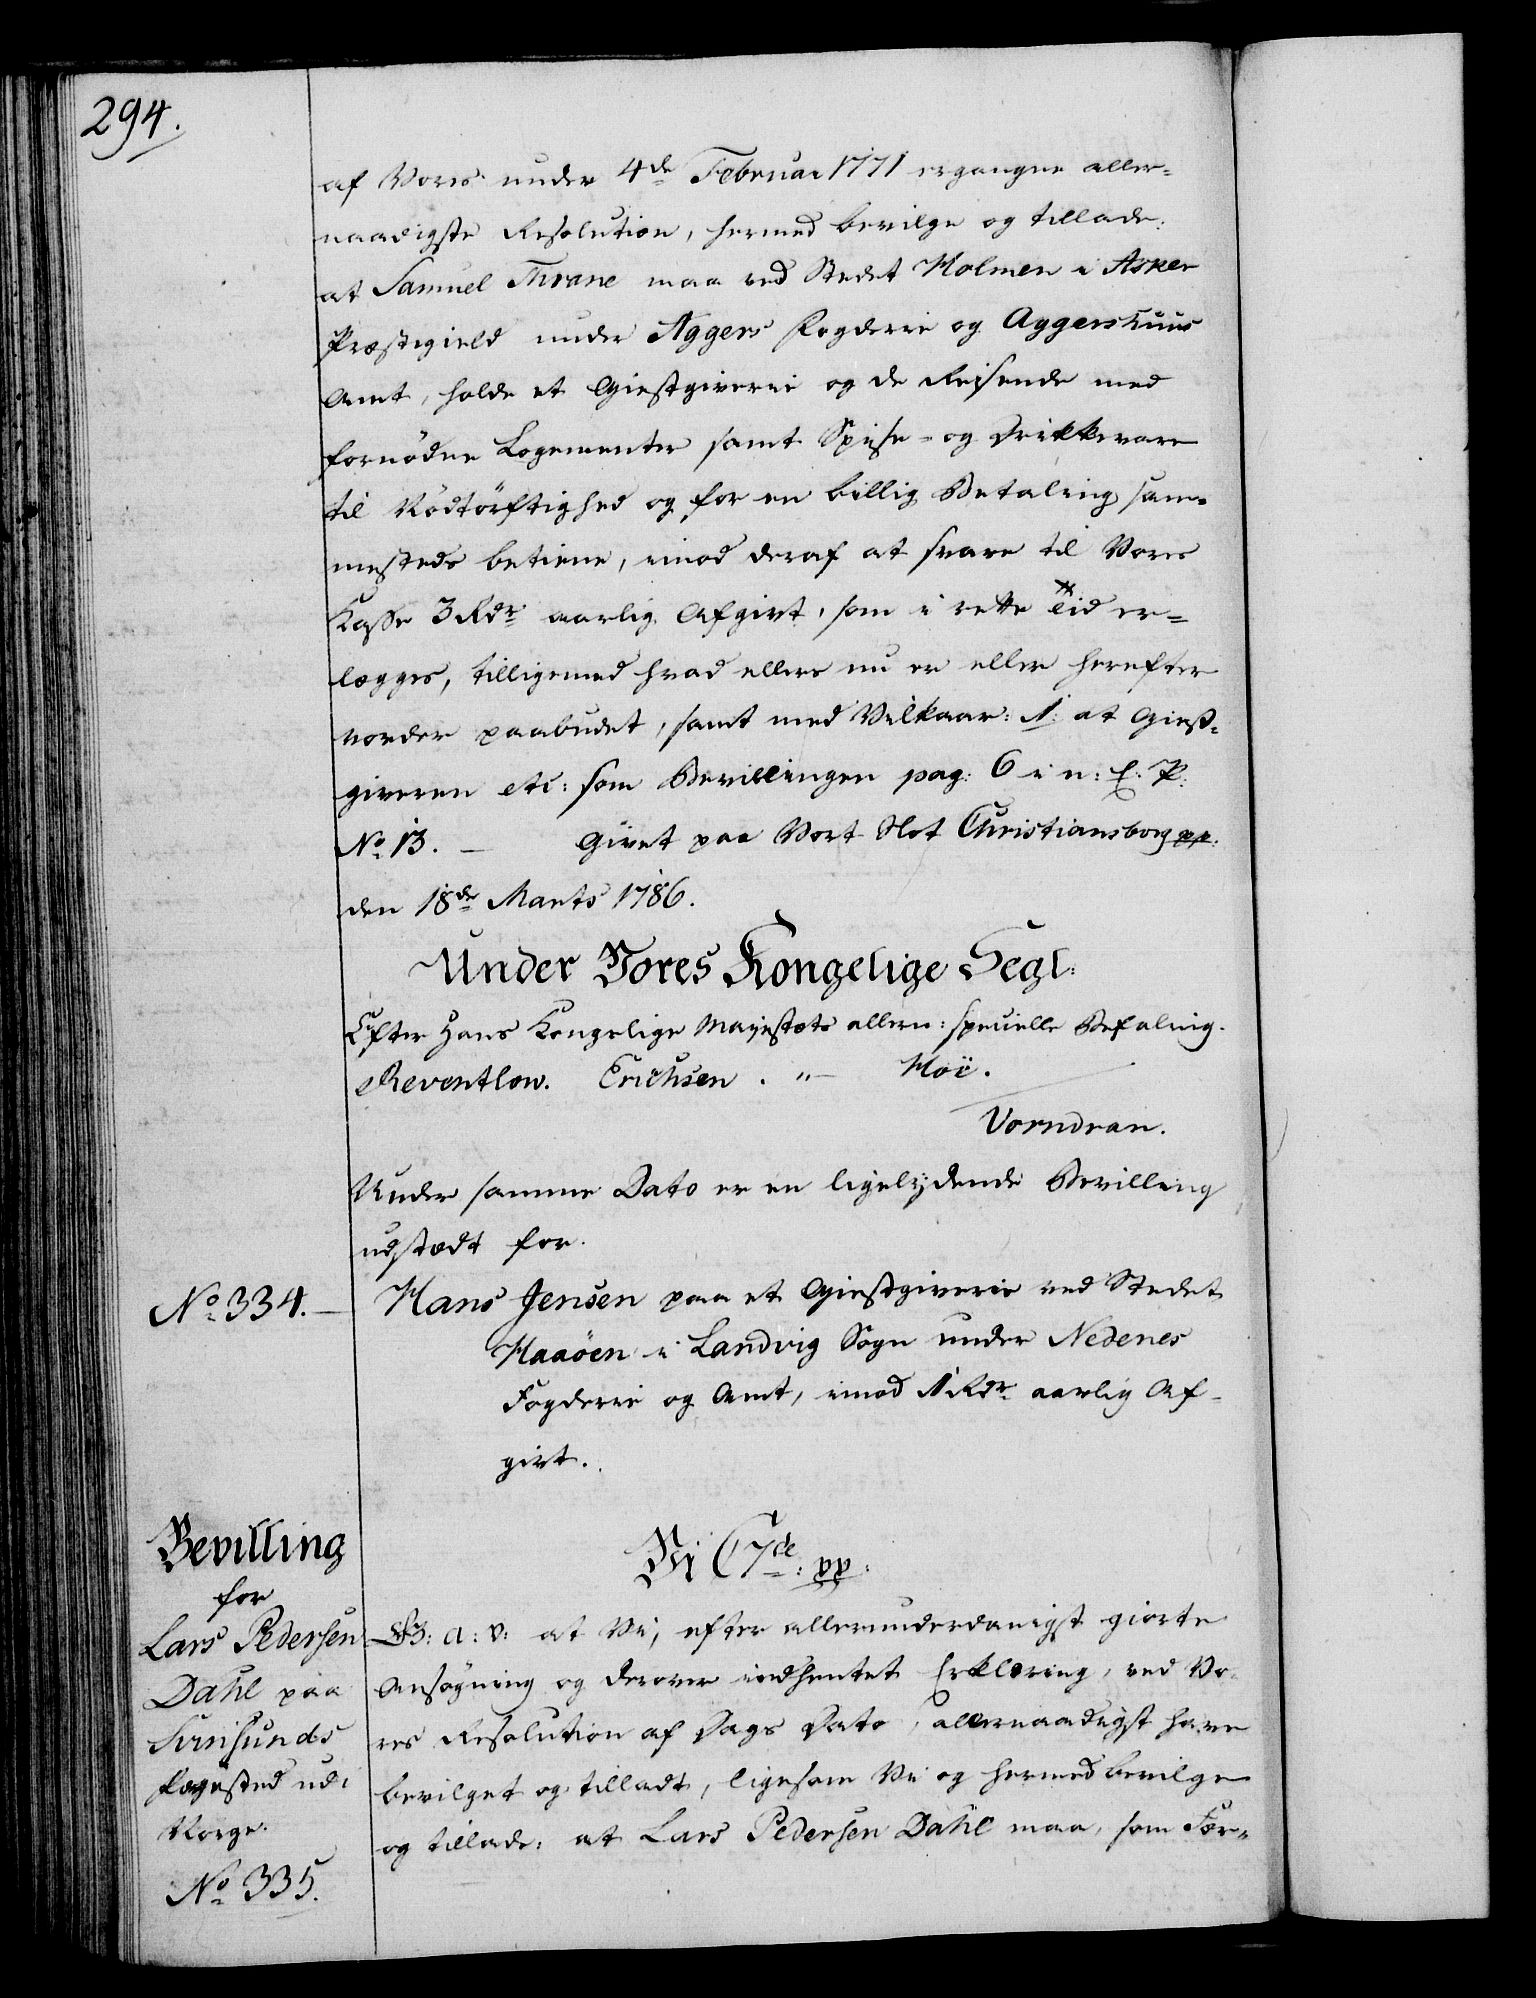 294.
af Vores under 4de Februar 1771 ergangne aller-
naadigste Resolution, hermed bevilge og tillade:
at Samuel Thrane maa ved Stedet Holmen i Asker
Præstegield under Aggers Fogderie og Aggershuus
Amt, holde et Giestgiverie og de Reisende med
fornødne Logementer samt Spise- og Drikkevare
til Nødtørftighed og for en billig Betaling sam-
mesteds betiene, imod deraf at svare til Vores
Kasse 3 Rdr aarlig Afgivt, som i rette Tid er-
lægges, tilligemed hvad ellers nu er eller herefter
vorder paabudet, samt med Vilkaar: 1: at Giest-
giveren etc: som Bevillingen pag: 6 i n: E: P.
No 13. — Givet paa Vort Slot Christiansborg pp:
den 18de Marts 1786.
Under Vores Kongelige Segl:
Efter Hans Kongelige Mayestæts allern: specielle Befaling.
Reventlow. Erichsen. " — Hoë.
Vorndran.
Under samme Dato er en ligelydende Bevilling
udstædt for.
No 334. — Hans Jensen paa et Giestgiverie ved Stedet
Haaöen i Landvig Sogn under Nedenes
Fogderie og Amt, imod 1 Rdr aarlig Af-
givt.
Bevilling
for
Lars Pedersen
Dahl paa
Svinsunds
Færgested udi
Norge.
No 335.
Vi C 7de: pp:
G: a: v: at Vi, efter allerunderdanigst giorte
Ansøgning og derover indhentet Erklæring, ved Vo-
res Resolution af Dags Dato, allernaadigst have
bevilget og tilladt, ligesom Vi og hermed bevilge
og tillade: at Lars Pedersen Dahl maa, som Fær-